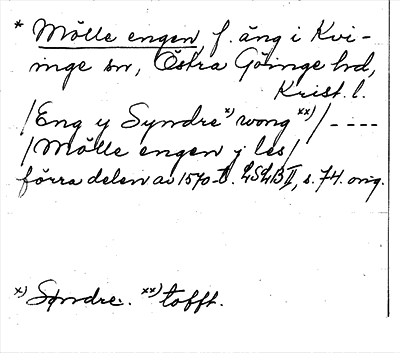 * Mölle engen, f. äng i Kvi-
inge sn, Östra Göinge hd,
Krist. l.
/Eng y Syndre x) wong xx)/ ----
/Mölle engen j les/
förra delen av 1570-t. LSLB II, s. 74. orig.
x) Syndre. xx) tofft.